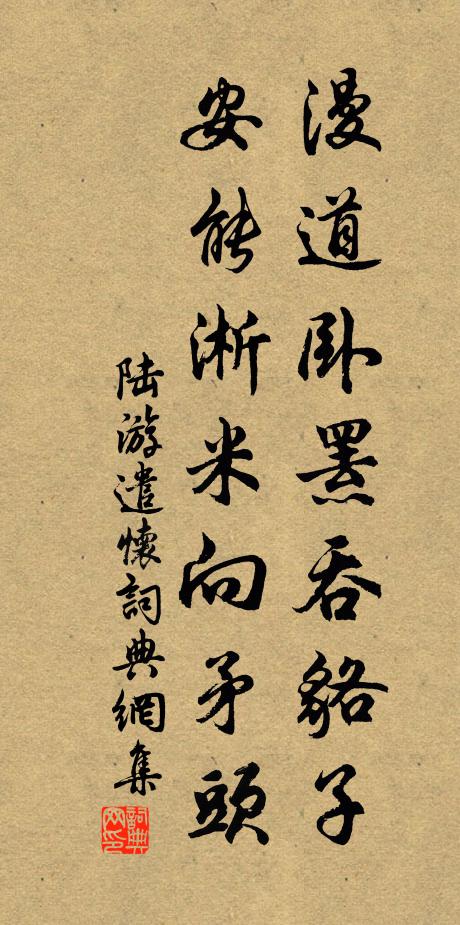 漫道卧罴吞貉子
安能淅米向矛頭
陆游遣懷詞典網集
詞典
网印